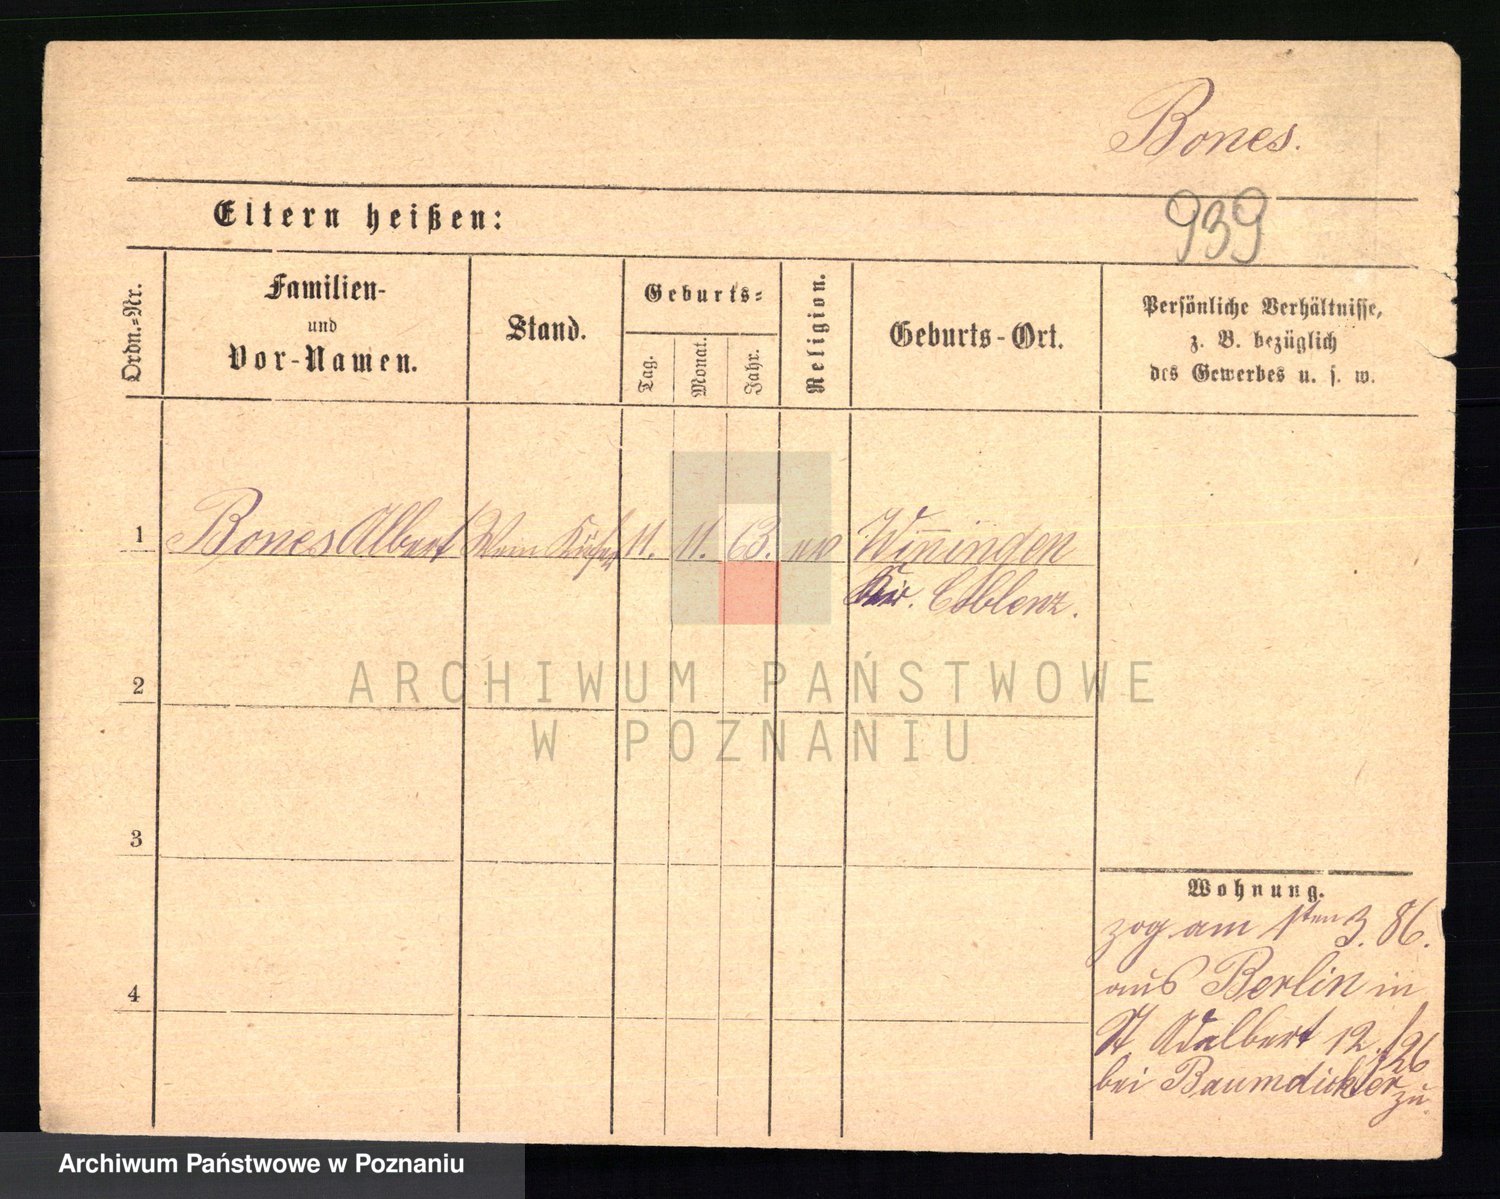 Bones.
939
Eltern heißen:
Ordn.-Nr.
Familien-
und
Vor-Namen.
Stand.
Geburts-
Tag.
Monat.
Jahr.
Religion.
Geburts-Ort.
Persönliche Verhältnisse,
z. B. bezüglich
des Gewerbes u. s. w.
1 Bones Albert Wein Küfer 11. 11. 63. ev Winingen
Coblenz.
2
3
4
Wohnung.
zog am 1ten 3. 86.
aus Berlin in
St Adalbert 12./26
bei Baumdicker zu.
ARCHIWUM PAŃSTWOWE
W POZNANIU
Archiwum Państwowe w Poznaniu